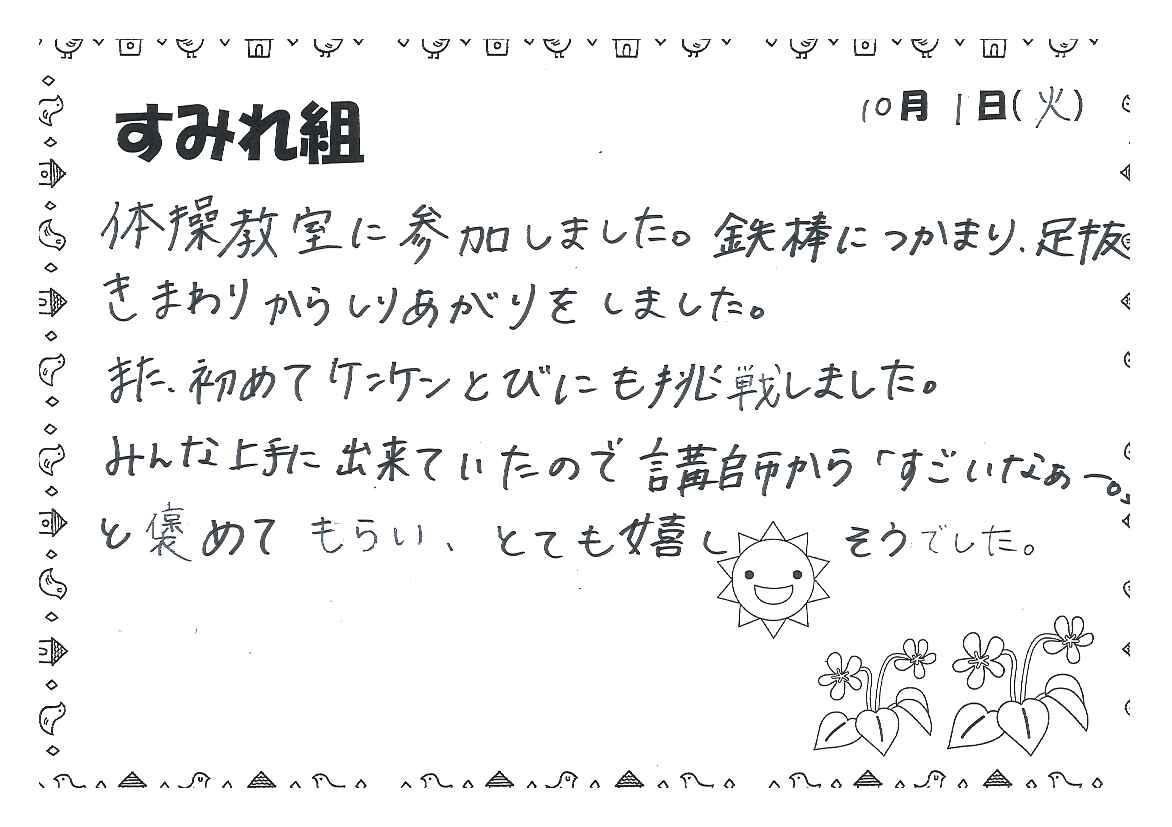 すみれ組
10月1日(火)
体操教室に参加しました。鉄棒につかまり、足抜
きまわりからしりあがりをしました。
また、初めてケンケンとびにも挑戦しました。
みんな上手に出来ていたので講師から「すごいなぁー。」
と褒めてもらい、とても嬉しそうでした。